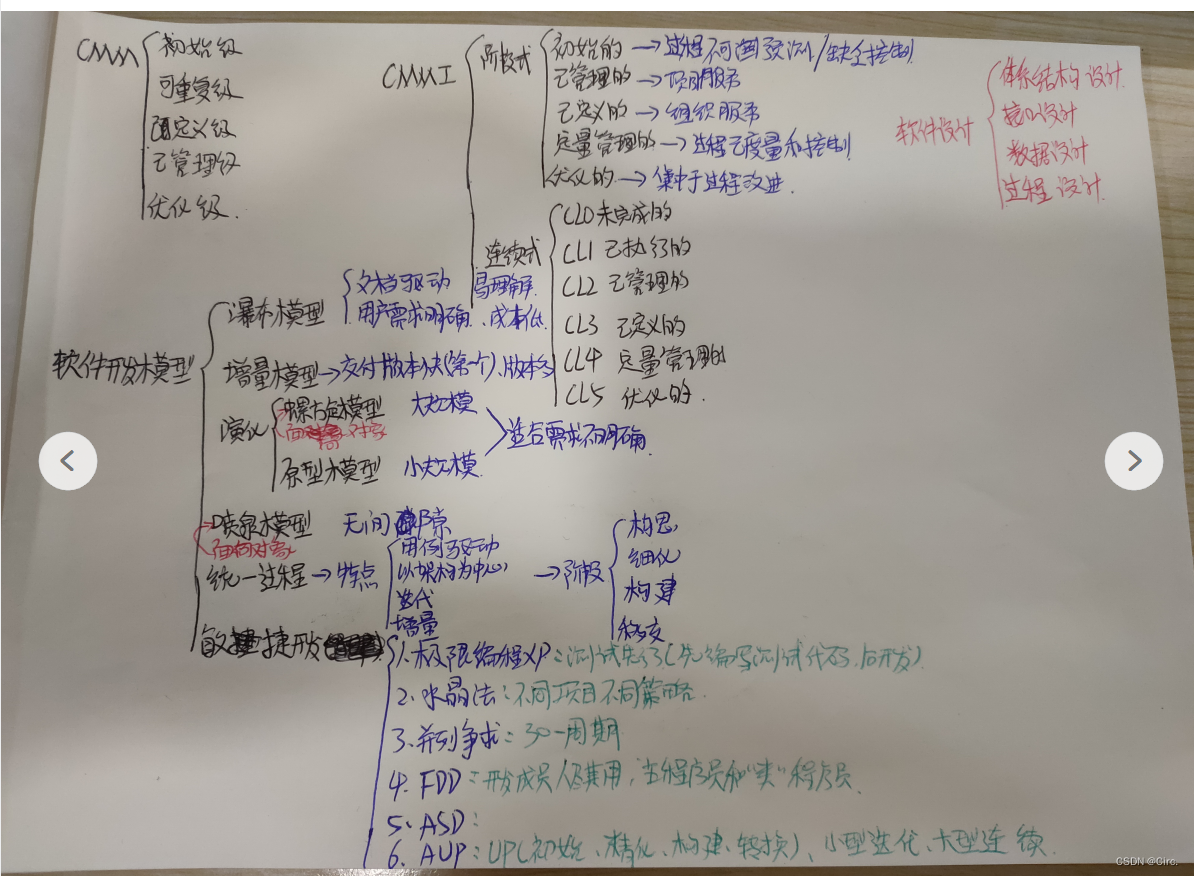 CMM
初始级
可重复级
已定义级
已管理级
优化级.
CMMI
阶段式
初始的 → 过程不可预测/缺乏控制
已管理的 → 项目服务
已定义的 → 组织服务
定量管理的 → 过程已度量和控制
优化的 → 集中于过程改进.
连续式
CL0 未完成的
CL1 已执行的
CL2 已管理的
CL3 已定义的
CL4 定量管理的
CL5 优化的.
软件设计
体系结构设计
接口设计
数据设计
过程设计
软件开发模型
瀑布模型
文档驱动 易理解.
用户需求明确、成本低.
增量模型 → 交付版本快(第一个)、版本多
演化
螺旋模型 大规模
面 对象
原型模型 小规模
适合需求不明确.
喷泉模型 无间隙
面向对象
统一过程 → 特点
用例驱动
以架构为中心
迭代
增量
→ 阶段
构思
细化
构建
移交
敏捷开发
1.极限编程XP:测试先行(先编写测试代码,后开发)
2.水晶法:不同项目不同策略.
3.并列争求:30一周期
4.FDD:开发成员 ,主程序员和"类"程序员.
5.ASD:
6.AUP:UP(初始、精化、构建、转换)、小型迭代、大型连续.
CSDN @Circ.